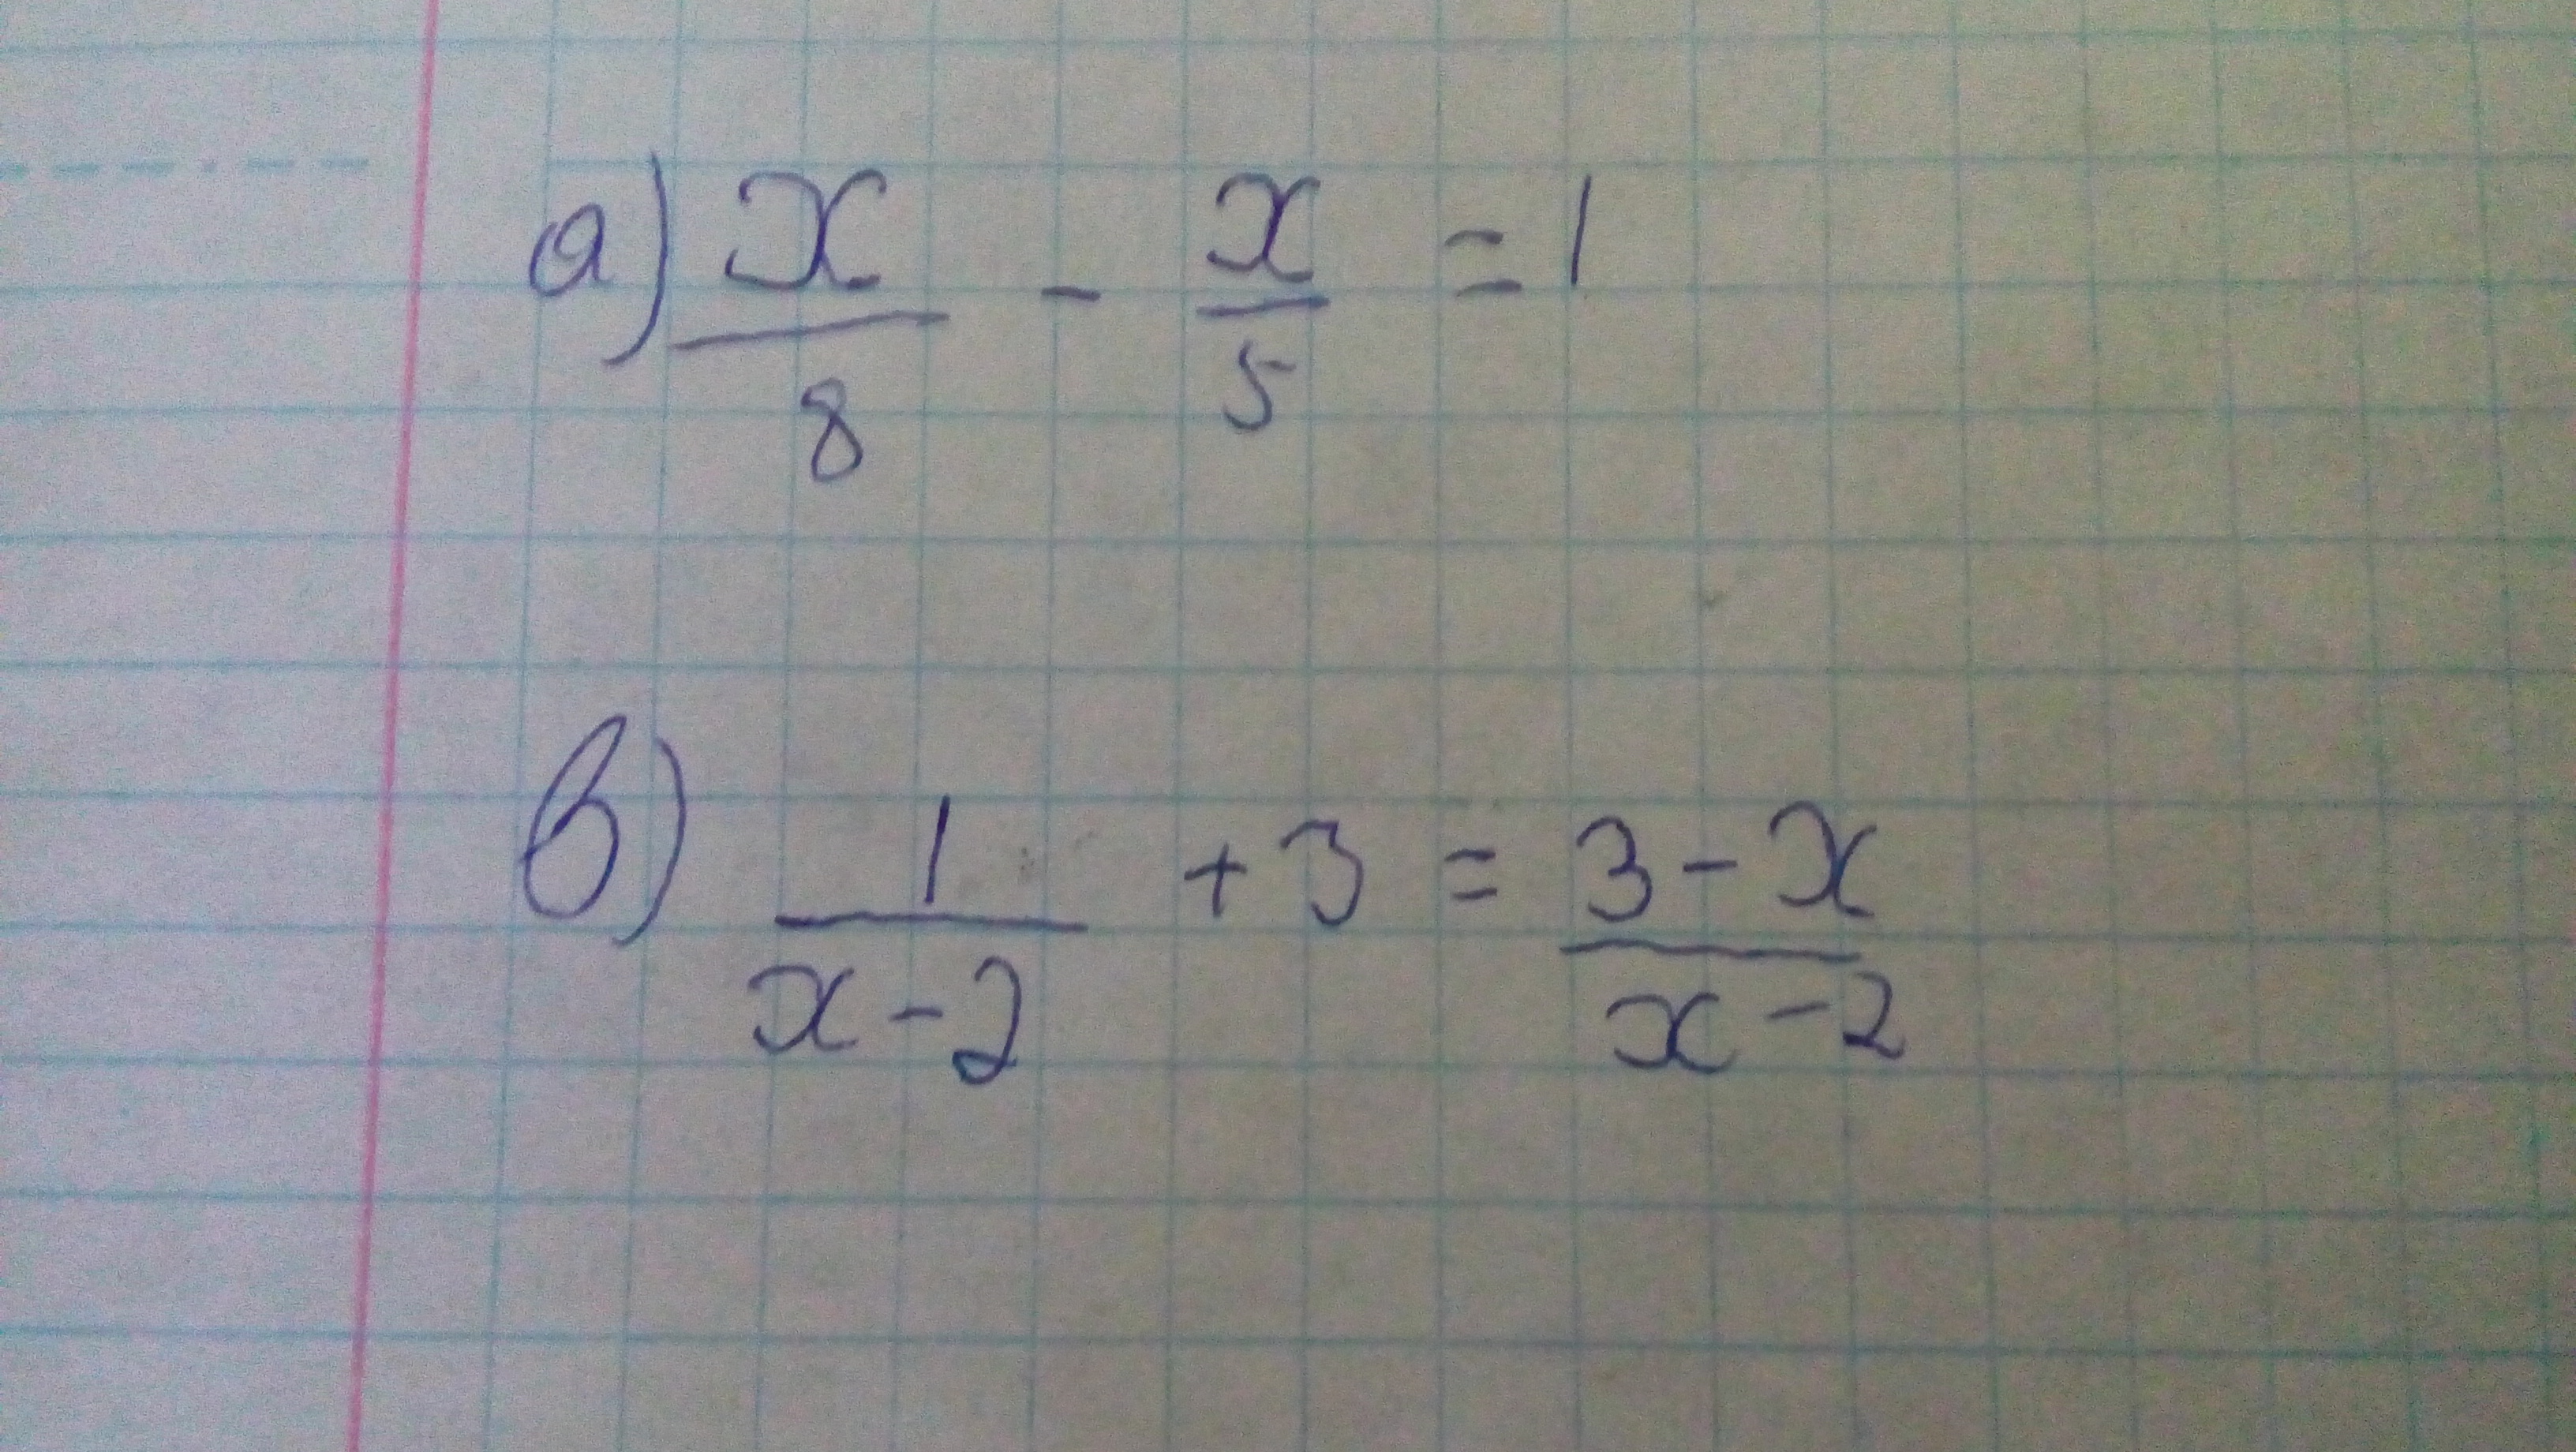 а) x/8 - x/5 = 1
в) 1/(x-2) + 3 = (3-x)/(x-2)